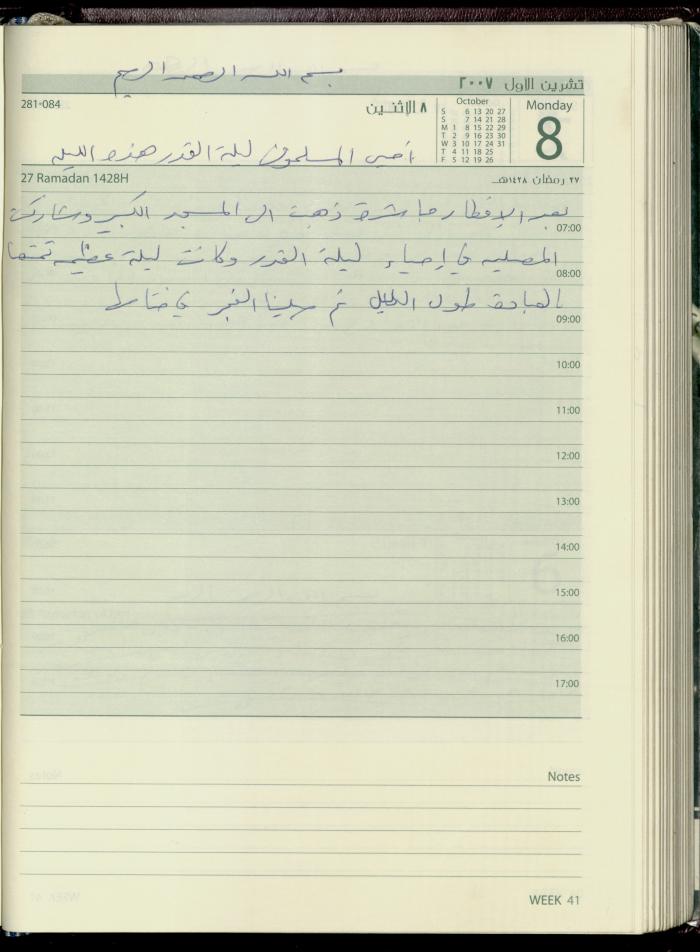 بسم الله الرحمن الرحيم
تشرين الاول ٢٠٠٧
281-084
٨ الإثنـــين
October
S 6 13 20 27
S 7 14 21 28
M 1 8 15 22 29
T 2 9 16 23 30
W 3 10 17 24 31
T 4 11 18 25
F 5 12 19 26
Monday
8
أحيى المسلمون ليلة القدر هذه الليلة
27 Ramadan 1428H
٢٧ رمضان ١٤٢٨هـ
بعد الإفطار مباشرة ذهبت الى المسجد الكبير وشاركت
07:00
المصلين في إحياء ليلة القدر وكانت ليلة عظيمة
08:00
بالعبادة طول الليل ثم صلينا الفجر في
09:00
10:00
11:00
12:00
13:00
14:00
15:00
16:00
17:00
Notes
WEEK 41